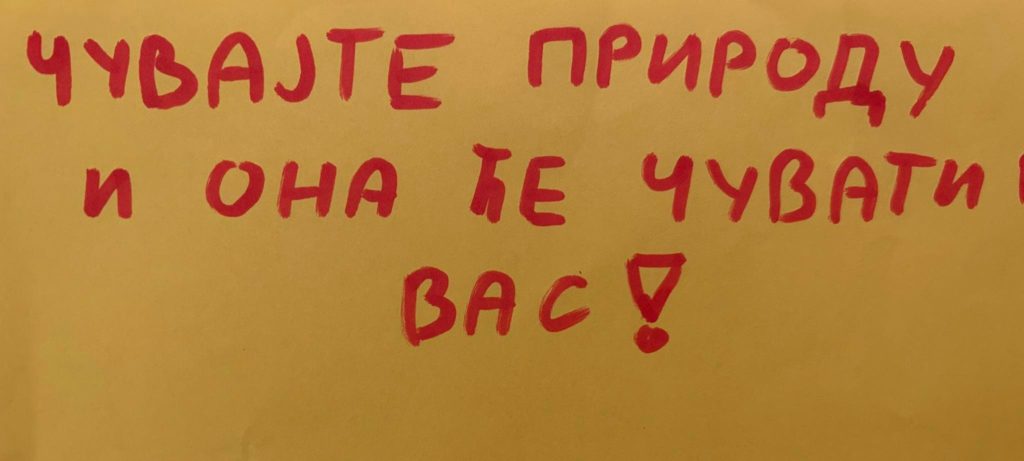 ЧУВАЈТЕ ПРИРОДУ
И ОНА ЋЕ ЧУВАТИ
ВАС!